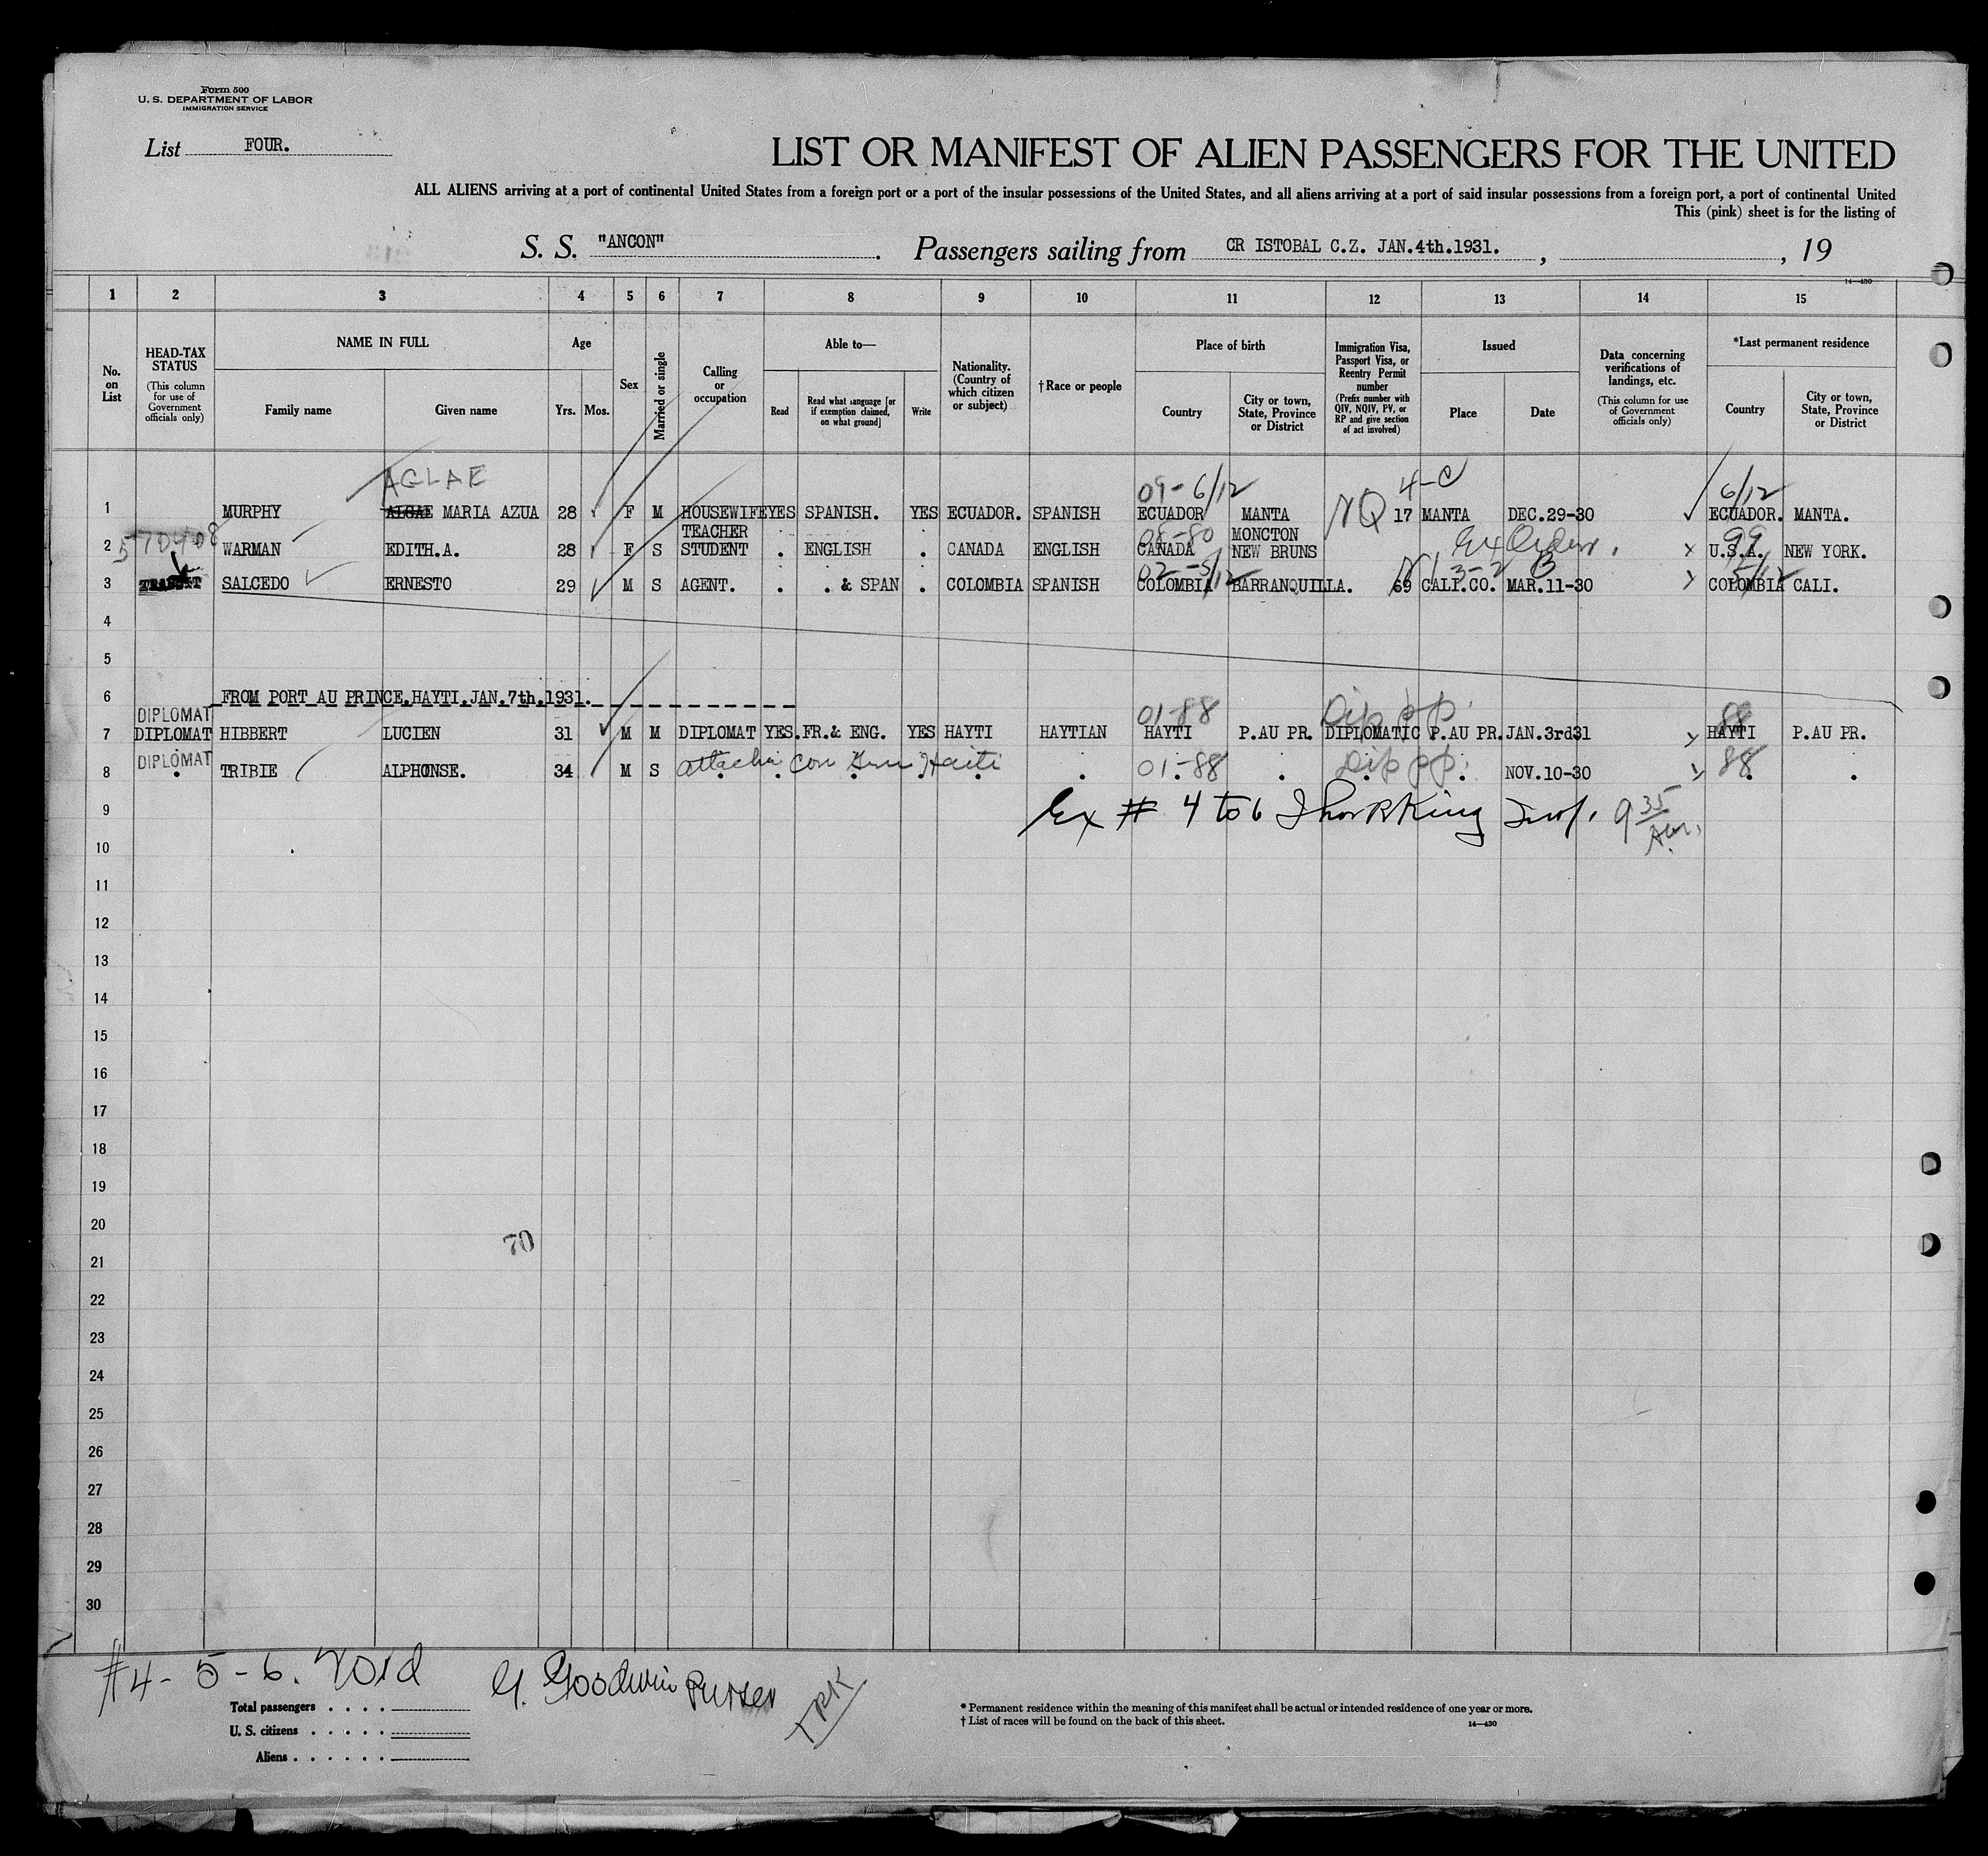 Form 500
U. S. DEPARTMENT OF LABOR
IMMIGRATION SERVICE
List FOUR.
LIST OR MANIFEST OF ALIEN PASSENGERS FOR THE UNITED
ALL ALIENS arriving at a port of continental United States from a foreign port or a port of the insular possessions of the United States, and all aliens arriving at a port of said insular possessions from a foreign port, a port of continental United
This (pink) sheet is for the listing of
S. S. "ANCON" . Passengers sailing from CR ISTOBAL C.Z. JAN.4th.1931. , , 19
14—430
1 2 3 4 5 6 7 8 9 10 11 12 13 14 15
No. on List
HEAD-TAX STATUS (This column for use of Government officials only)
NAME IN FULL
Family name
Given name
Age
Yrs. Mos.
Sex
Married or single
Calling or occupation
Able to—
Read
Read what language [or if exemption claimed, on what ground]
Write
Nationality. (Country of which citizen or subject)
†Race or people
Place of birth
Country
City or town, State, Province or District
Immigration Visa, Passport Visa, or Reentry Permit number (Prefix number with QIV, NQIV, PV, or RP and give section of act involved)
Issued
Place
Date
Data concerning verifications of landings, etc. (This column for use of Government officials only)
*Last permanent residence
Country
City or town, State, Province or District
AGLAE 09-6/12 4-C 6/12
1 MURPHY ALGAE MARIA AZUA 28 F M HOUSEWIFE YES SPANISH. YES ECUADOR. SPANISH ECUADOR MANTA NQ 17 MANTA DEC.29-30 ECUADOR. MANTA.
570408 TEACHER 08-80 MONCTON 99
2 WARMAN EDITH.A. 28 F S STUDENT . ENGLISH . CANADA ENGLISH CANADA NEW BRUNS U.S.A. NEW YORK.
02-5/12 3-2 B 5/12
3 TRANSIT SALCEDO ERNESTO 29 M S AGENT. . . & SPAN . COLOMBIA SPANISH COLOMBIA BARRANQUILLA. 69 CALI.CO. MAR.11-30 COLOMBIA CALI.
4
5
6 FROM PORT AU PRINCE.HAYTI.JAN.7th.1931.
DIPLOMAT 01-88 Dip pp. 88
7 DIPLOMAT HIBBERT LUCIEN 31 M M DIPLOMAT YES. FR.& ENG. YES HAYTI HAYTIAN HAYTI P.AU PR. DIPLOMATIC P.AU PR. JAN.3rd31 HAYTI P.AU PR.
DIPLOMAT
8 . TRIBIE ALPHONSE. 34 M S Haiti . 01-88 . Dip pp. NOV.10-30 88 .
9 Ex # 4 to 6 King Insp. 9 35 Am.
10
11
12
13
14
15
16
17
18
19
20
70
21
22
23
24
25
26
27
28
29
30
#4-5-6. Void G. Goodwin Purser TRK
Total passengers . . . .
U. S. citizens . . . . .
Aliens . . . . . .
* Permanent residence within the meaning of this manifest shall be actual or intended residence of one year or more.
† List of races will be found on the back of this sheet. 14—430